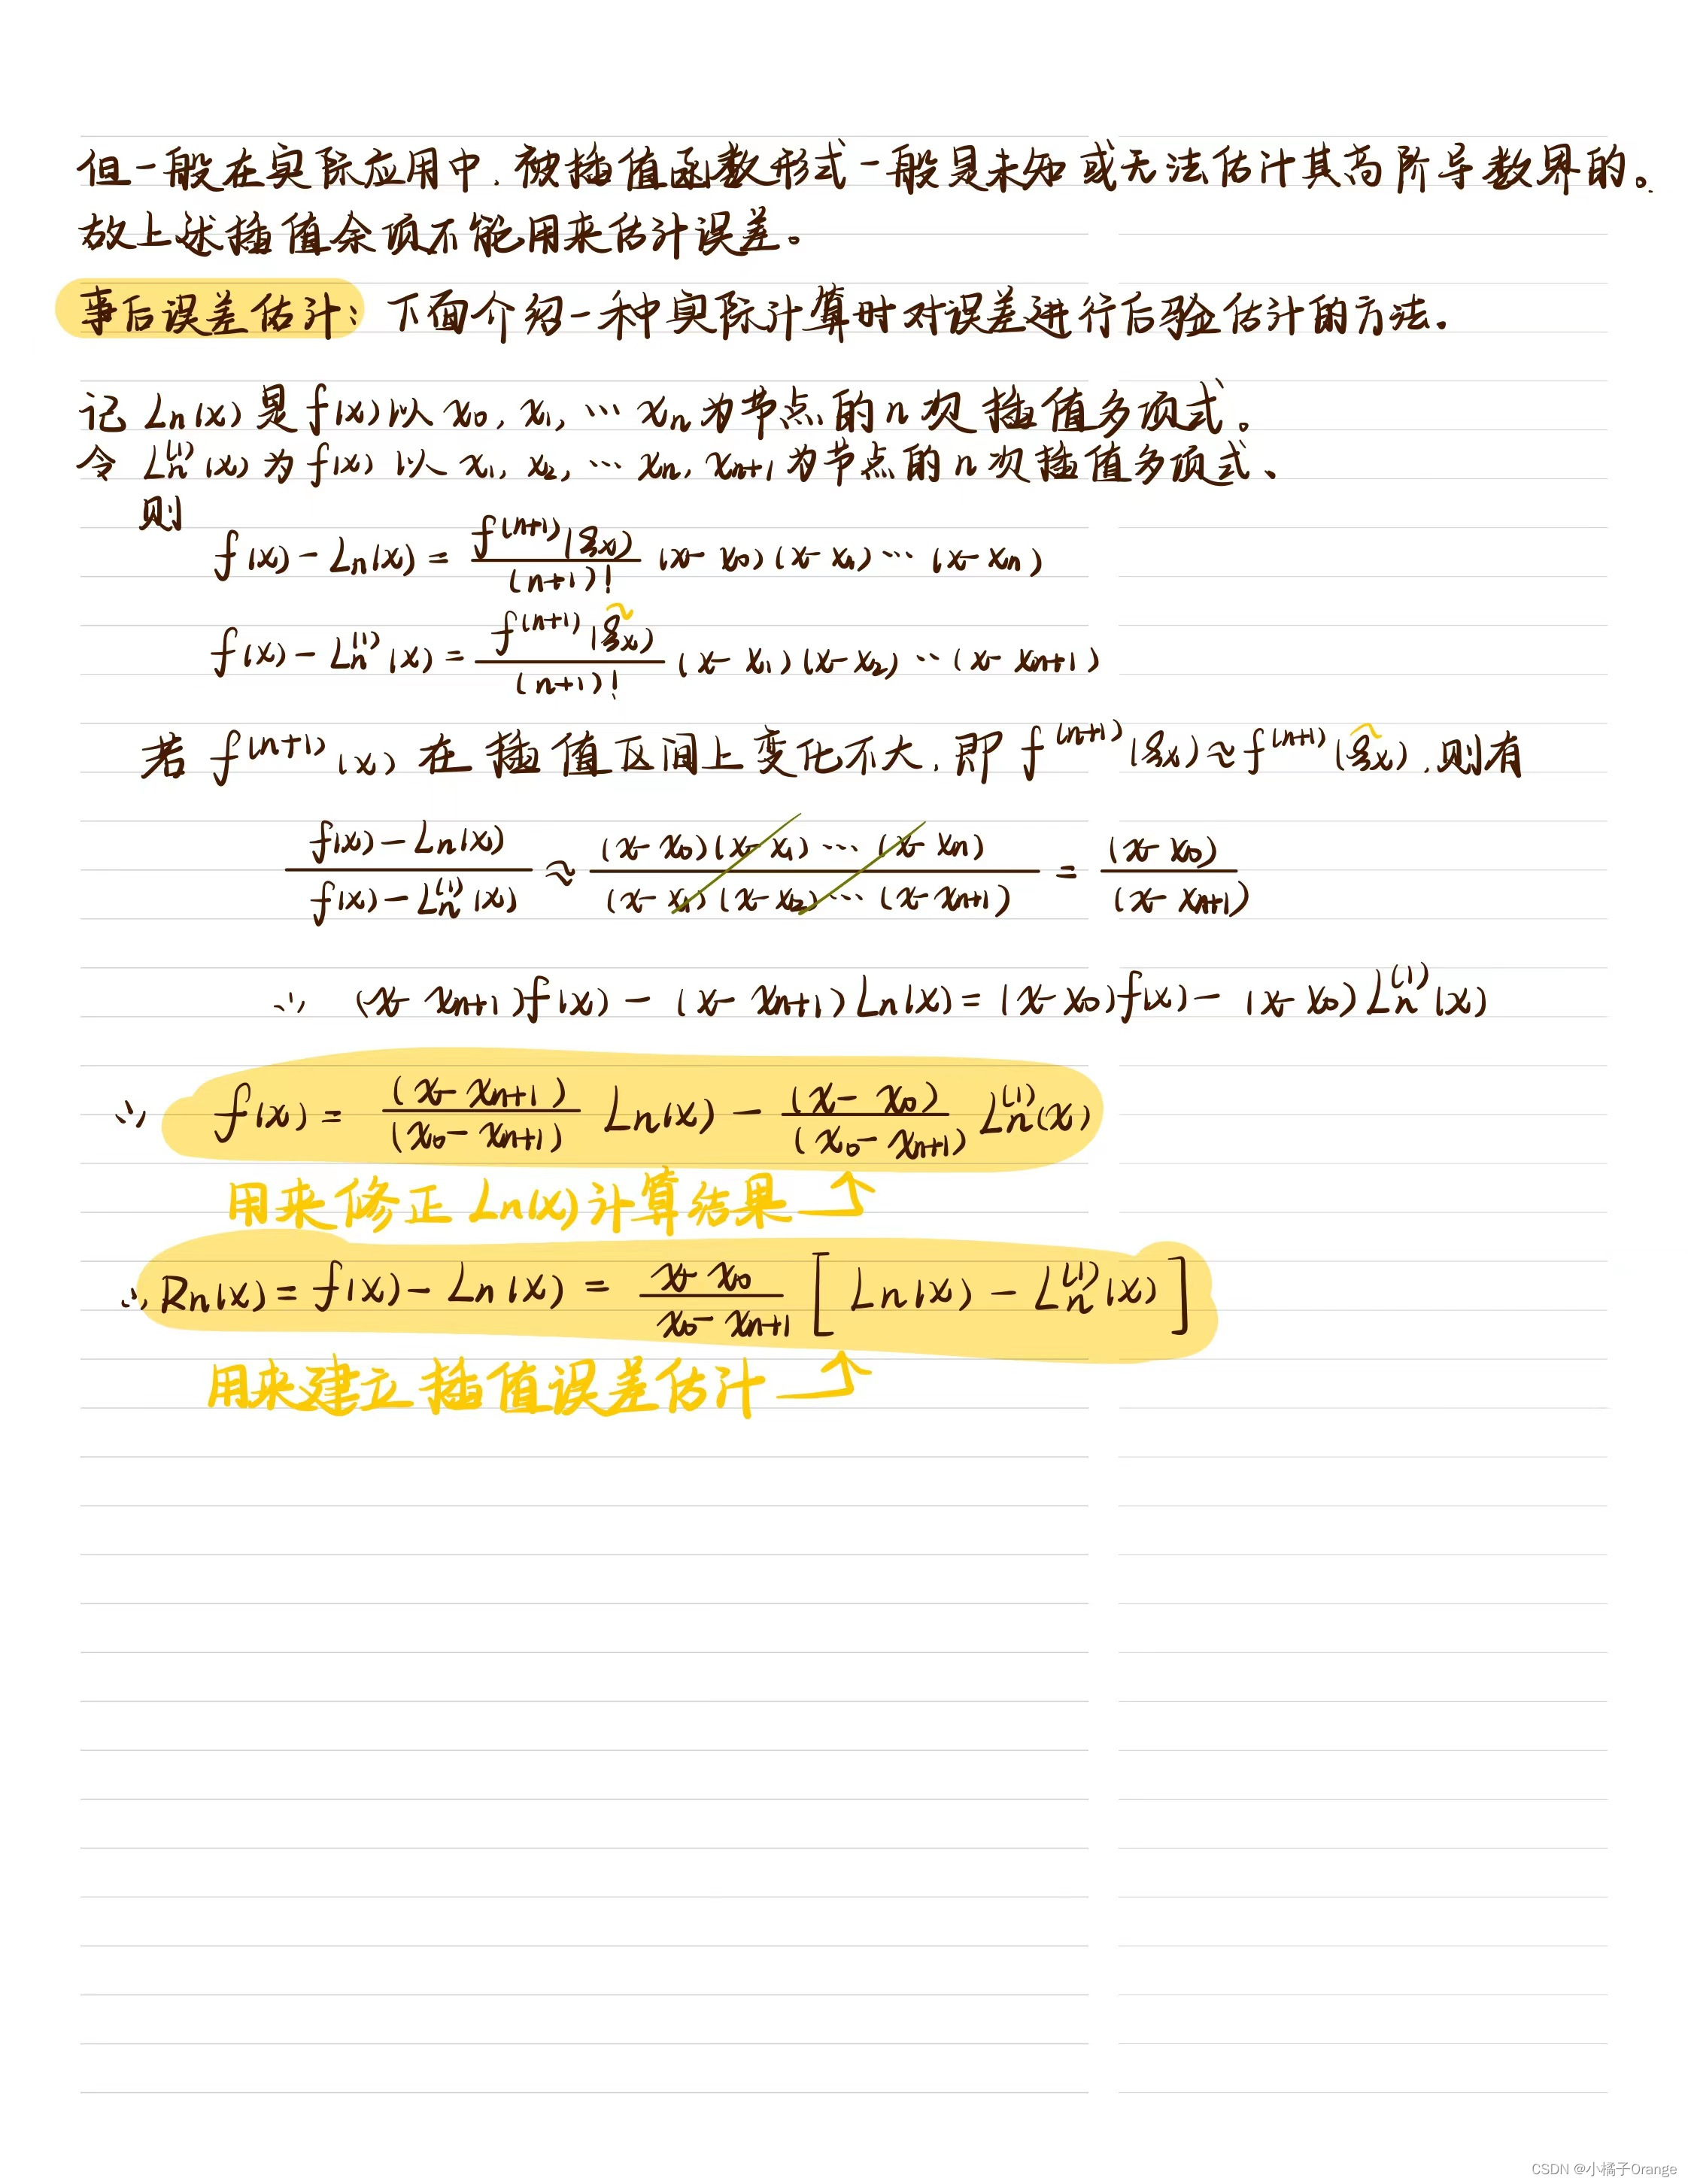 但一般在实际应用中,被插值函数形式一般是未知或无法估计其高阶导数界的。
故上述插值余项不能用来估计误差。
事后误差估计: 下面介绍一种实际计算时对误差进行后验估计的方法.
记 Ln(x) 是 f(x) 以 x₀, x₁, … xₙ 为节点的 n 次 插值多项式。
令 Lₙ⁽¹⁾(x) 为 f(x) 以 x₁, x₂, … xₙ, xₙ₊₁ 为节点的 n 次 插值多项式、
则
f(x) - Ln(x) = f⁽ⁿ⁺¹⁾(ξx) / (n+1)! (x-x₀)(x-x₁)…(x-xₙ)
f(x) - Lₙ⁽¹⁾(x) = f⁽ⁿ⁺¹⁾(ξ̃x) / (n+1)! (x-x₁)(x-x₂)…(x-xₙ₊₁)
若 f⁽ⁿ⁺¹⁾(x) 在插值区间上变化不大, 即 f⁽ⁿ⁺¹⁾(ξx) ≈ f⁽ⁿ⁺¹⁾(ξ̃x), 则有
(f(x) - Ln(x)) / (f(x) - Lₙ⁽¹⁾(x)) ≈ (x-x₀)(x-x₁)…(x-xₙ) / (x-x₁)(x-x₂)…(x-xₙ₊₁) = (x-x₀) / (x-xₙ₊₁)
∴ (x-xₙ₊₁)f(x) - (x-xₙ₊₁)Ln(x) = (x-x₀)f(x) - (x-x₀)Lₙ⁽¹⁾(x)
∴ f(x) = (x-xₙ₊₁) / (x₀-xₙ₊₁) Ln(x) - (x-x₀) / (x₀-xₙ₊₁) Lₙ⁽¹⁾(x)
用来修正 Ln(x) 计算结果
∴ Rn(x) = f(x) - Ln(x) = x-x₀ / x₀-xₙ₊₁ [ Ln(x) - Lₙ⁽¹⁾(x) ]
用来建立插值误差估计
CSDN @小橘子Orange